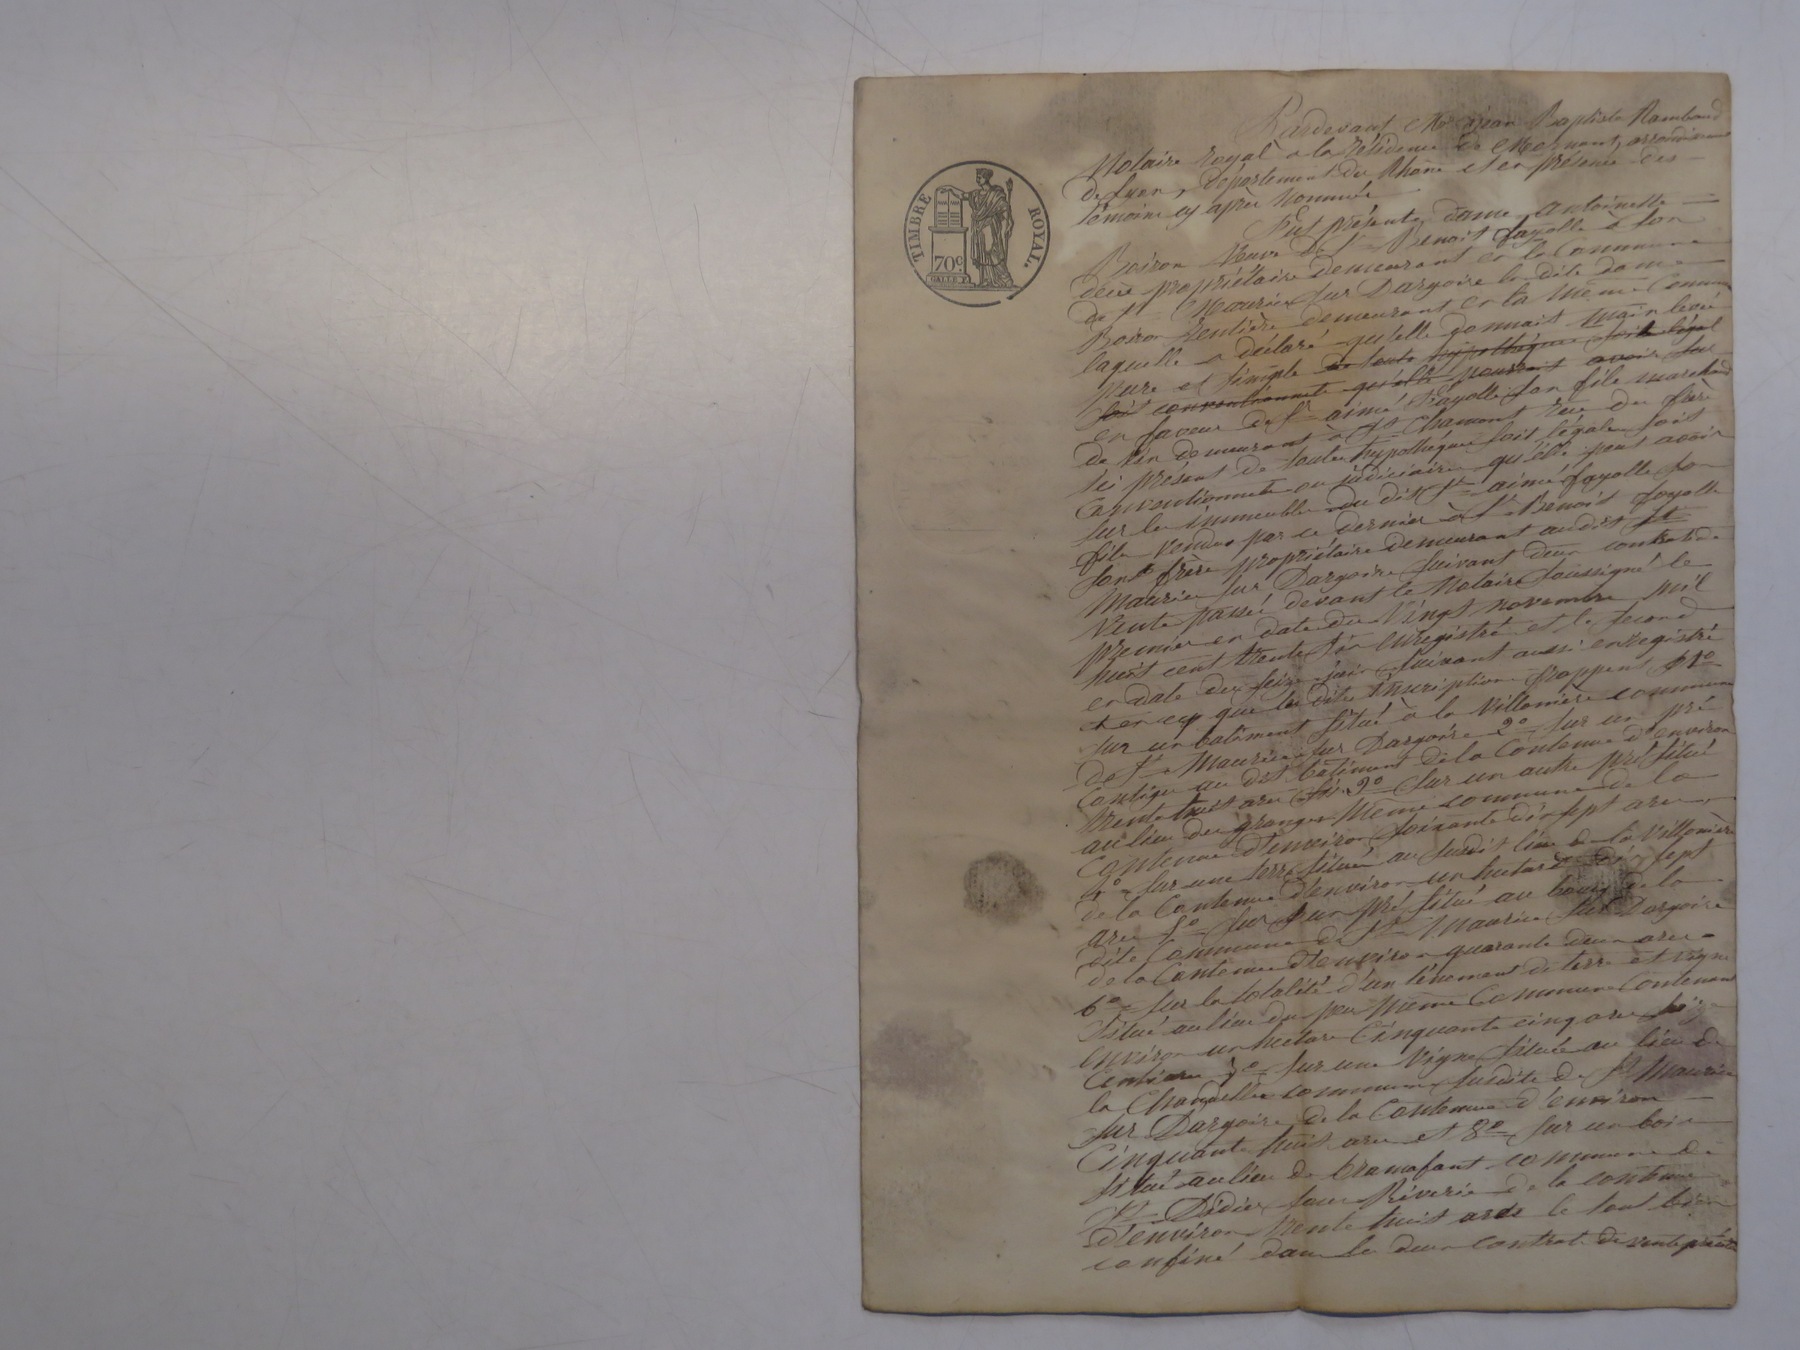 TIMBRE ROYAL
70c
Pardevant Me Jean Baptiste Rambaud
Notaire Royal à la résidence de Mornant, arrondissement
de Lyon, département du Rhône et en présence des
témoins cy après nommés
Fut présente dame Antoinette
Boiron Veuve de Sr Benoit fayolle à son
décè propriétaire demeurant en la Commune
de St Maurice sur Dargoire la dite dame
Boiron Rentière demeurant en la même Commune
laquelle a déclaré qu'elle donnait main levée
pure et simple de toute hypothèque soit légal
soit conventionnelle qu'elle pourrait avoir sur
en faveur de Sr aimé Fayolle son fils marchand
de vin demeurant à St Chamont rue du
ici présent de toute hypothèque soit légale soit
Conventionnelle ou judiciaire qu'elle peut avoir
sur les immeubles du dit Sr aimé fayolle son
fils vendus par ce dernier à Sr Benoit fayolle
son frère propriétaire demeurant au dit St
Maurice sur Dargoire suivant deux contrats de
Vente passés devant le Notaire soussigné le
premier en date du Vingt novembre mil
huit cent trente six enregistré et le second
en date du seize juin suivant aussi enregistré
en ce que la dite inscription frappent 1o
sur un batiment situé à la Villonière commune
de St Maurice sur Dargoire 2o sur un pré
Contigu au dit batiment de la Contenue d'environ
trente huit ares 3o sur un autre pré situé
au lieu des granges même commune de la
Contenue d'environ soixante dix sept ares
4o sur une terre située au susdit lieu de la Villonière
de la Contenue d'environ un hectare dix sept
ares 5o sur un pré situé au bourg de la
dite Commune de St Maurice sur Dargoire
de la Contenue d'environ quarante deux ares
6o sur la totalité d'un tènement de terre et vigne
situé au lieu du même Commune Contenant
environ un hectare Cinquante cinq ares
Centiares 7o sur une Vigne située au lieu de
la commune susdite de St Maurice
sur Dargoire de la Contenue d'environ
Cinquante huit ares et 8o sur un bois
situé au lieu de bramafant commune de
St Didier sous Riverie de la contenue
d'environ trente huit ares le tout bien
confiné dans les deux contrats de vente précités